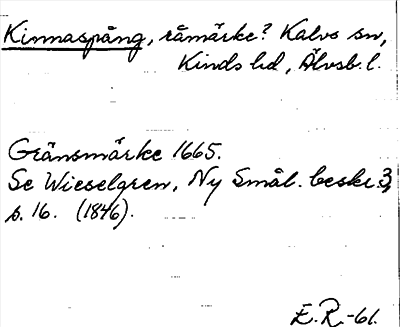 Kinnaspång, råmärke? Kalvs sn,
Kinds hd, Älvsb. l.
Gränsmärke 1665.
Se Wieselgren, Ny Smål. beskr. 3,
s. 16. (1846).
E.R.-61.